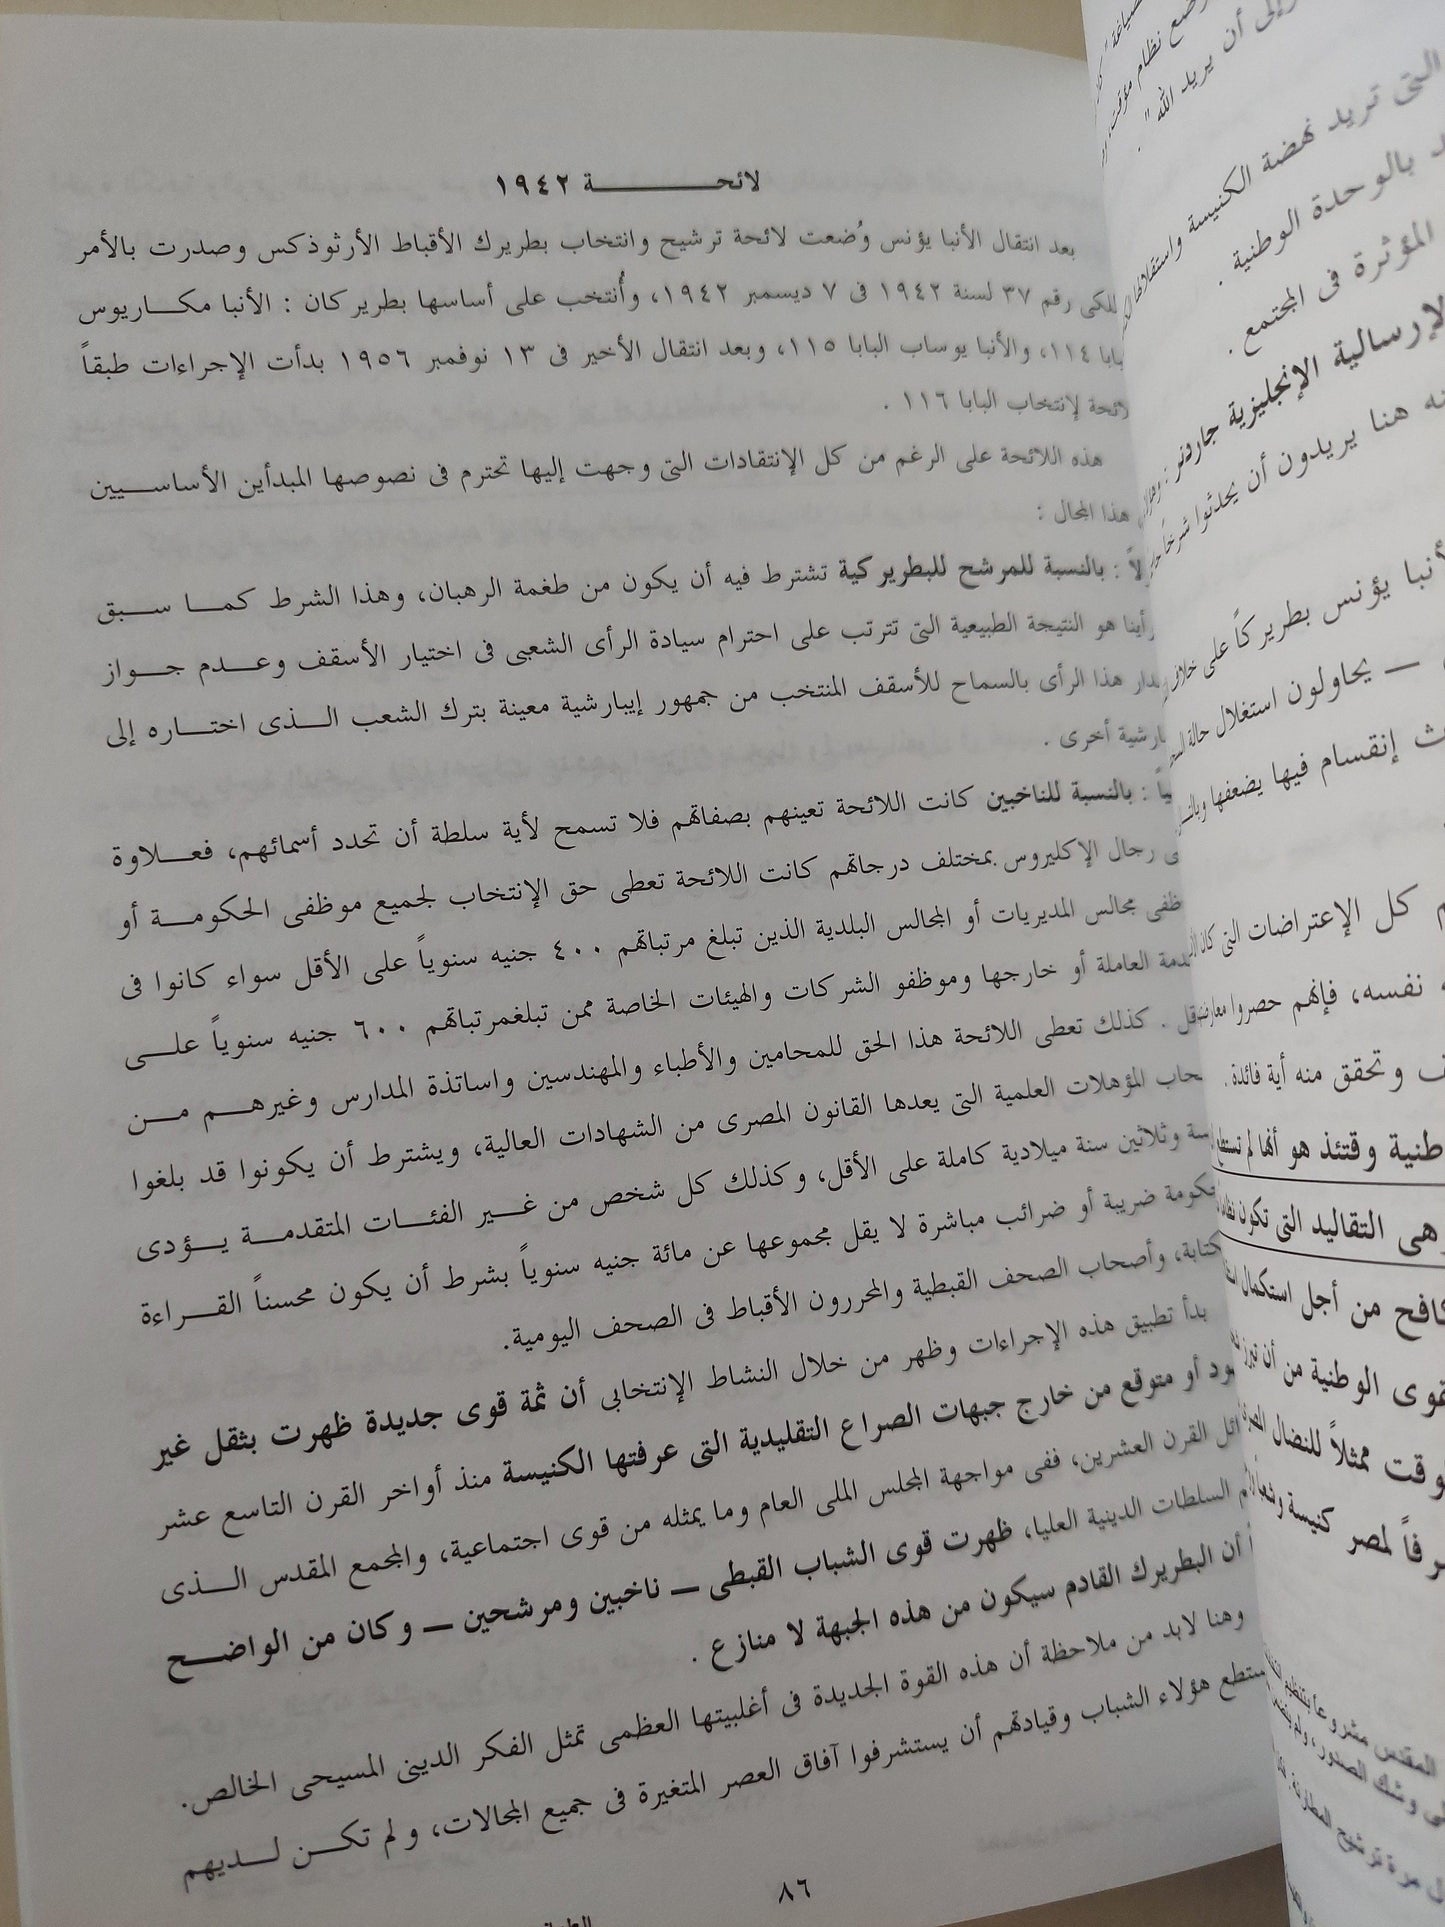 لائحة ١٩٤٢
بعد انتقال الأنبا يؤنس وُضعت لائحة ترشيح وانتخاب بطريرك الأقباط الأرثوذكس وصدرت بالأمر
رقم ٣٧ لسنة ١٩٤٢ فى ٧ ديسمبر ١٩٤٢، وأُنتخب على أساسها بطريركان : الأنبا مكاريوس
١١٤، والأنبا يوساب البابا ١١٥، وبعد انتقال الأخير فى ١٣ نوفمبر ١٩٥٦ بدأت الإجراءات طبقاً
لإنتخاب البابا ١١٦ .
هذه اللائحة على الرغم من كل الإنتقادات التى وجهت إليها تحترم فى نصوصها المبدأين الأساسيين
هذا المجال :
: بالنسبة للمرشح للبطريركية تشترط فيه أن يكون من طغمة الرهبان، وهذا الشرط كما سبق
هو النتيجة الطبيعية التى تترتب على احترام سيادة الرأى الشعبى فى اختيار الأسقف وعدم جواز
هذا الرأى بالسماح للأسقف المنتخب من جمهور إيبارشية معينة بترك الشعب الذى اختاره إلى
أخرى .
: بالنسبة للناخبين كانت اللائحة تعينهم بصفاتهم فلا تسمح لأية سلطة أن تحدد أسمائهم، فعلاوة
رجال الإكليروس بمختلف درجاتهم كانت اللائحة تعطى حق الإنتخاب لجميع موظفى الحكومة أو
مجالس المديريات أو المجالس البلدية الذين تبلغ مرتباتهم ٤٠٠ جنيه سنوياً على الأقل سواء كانوا فى
العاملة أو خارجها وموظفو الشركات والهيئات الخاصة ممن تبلغمرتباتهم ٦٠٠ جنيه سنوياً على
. كذلك تعطى اللائحة هذا الحق للمحامين والأطباء والمهندسين واساتذة المدارس وغيرهم من
المؤهلات العلمية التى يعدها القانون المصرى من الشهادات العالية، ويشترط أن يكونوا قد بلغوا
وثلاثين سنة ميلادية كاملة على الأقل، وكذلك كل شخص من غير الفئات المتقدمة يؤدى
ضريبة أو ضرائب مباشرة لا يقل مجموعها عن مائة جنيه سنوياً بشرط أن يكون محسناً القراءة
وأصحاب الصحف القبطية والمحررون الأقباط فى الصحف اليومية.
بدأ تطبيق هذه الإجراءات وظهر من خلال النشاط الإنتخابى أن ثمة قوى جديدة ظهرت بثقل غير
أو متوقع من خارج جبهات الصراع التقليدية التى عرفتها الكنيسة منذ أواخر القرن التاسع عشر
القرن العشرين، ففى مواجهة المجلس الملى العام وما يمثله من قوى اجتماعية، والمجمع المقدس الذى
السلطات الدينية العليا، ظهرت قوى الشباب القبطى ــ ناخبين ومرشحين ــ وكان من الواضح
أن البطريرك القادم سيكون من هذه الجبهة لا منازع .
وهنا لابد من ملاحظة أن هذه القوة الجديدة فى أغلبيتها العظمى تمثل الفكر الدينى المسيحى الخالص.
هؤلاء الشباب وقيادتهم أن يستشرفوا آفاق العصر المتغيرة فى جميع المجالات، ولم تكن لديهم
٨٦
أن يريد الله " .
التى تريد نهضة الكنيسة
بالوحدة الوطنية .
المؤثرة فى المجتمع .
الإرسالية الإنجليزية جاردنر :
هنا يريدون أن يحدثوا شرخاً
يؤنس بطريركاً على
ــ يحاولون استغلال حالة
إنقسام فيها يضعفها
كل الإعتراضات التى
نفسه، فإنهم حصروا
وتحقق منه أية فائدة .
وقتئذ هو أنها لم
وهى التقاليد التى تكون
من أجل استكمال
الوطنية من أن
ممثلاً للنضال
لمصر كنيسة